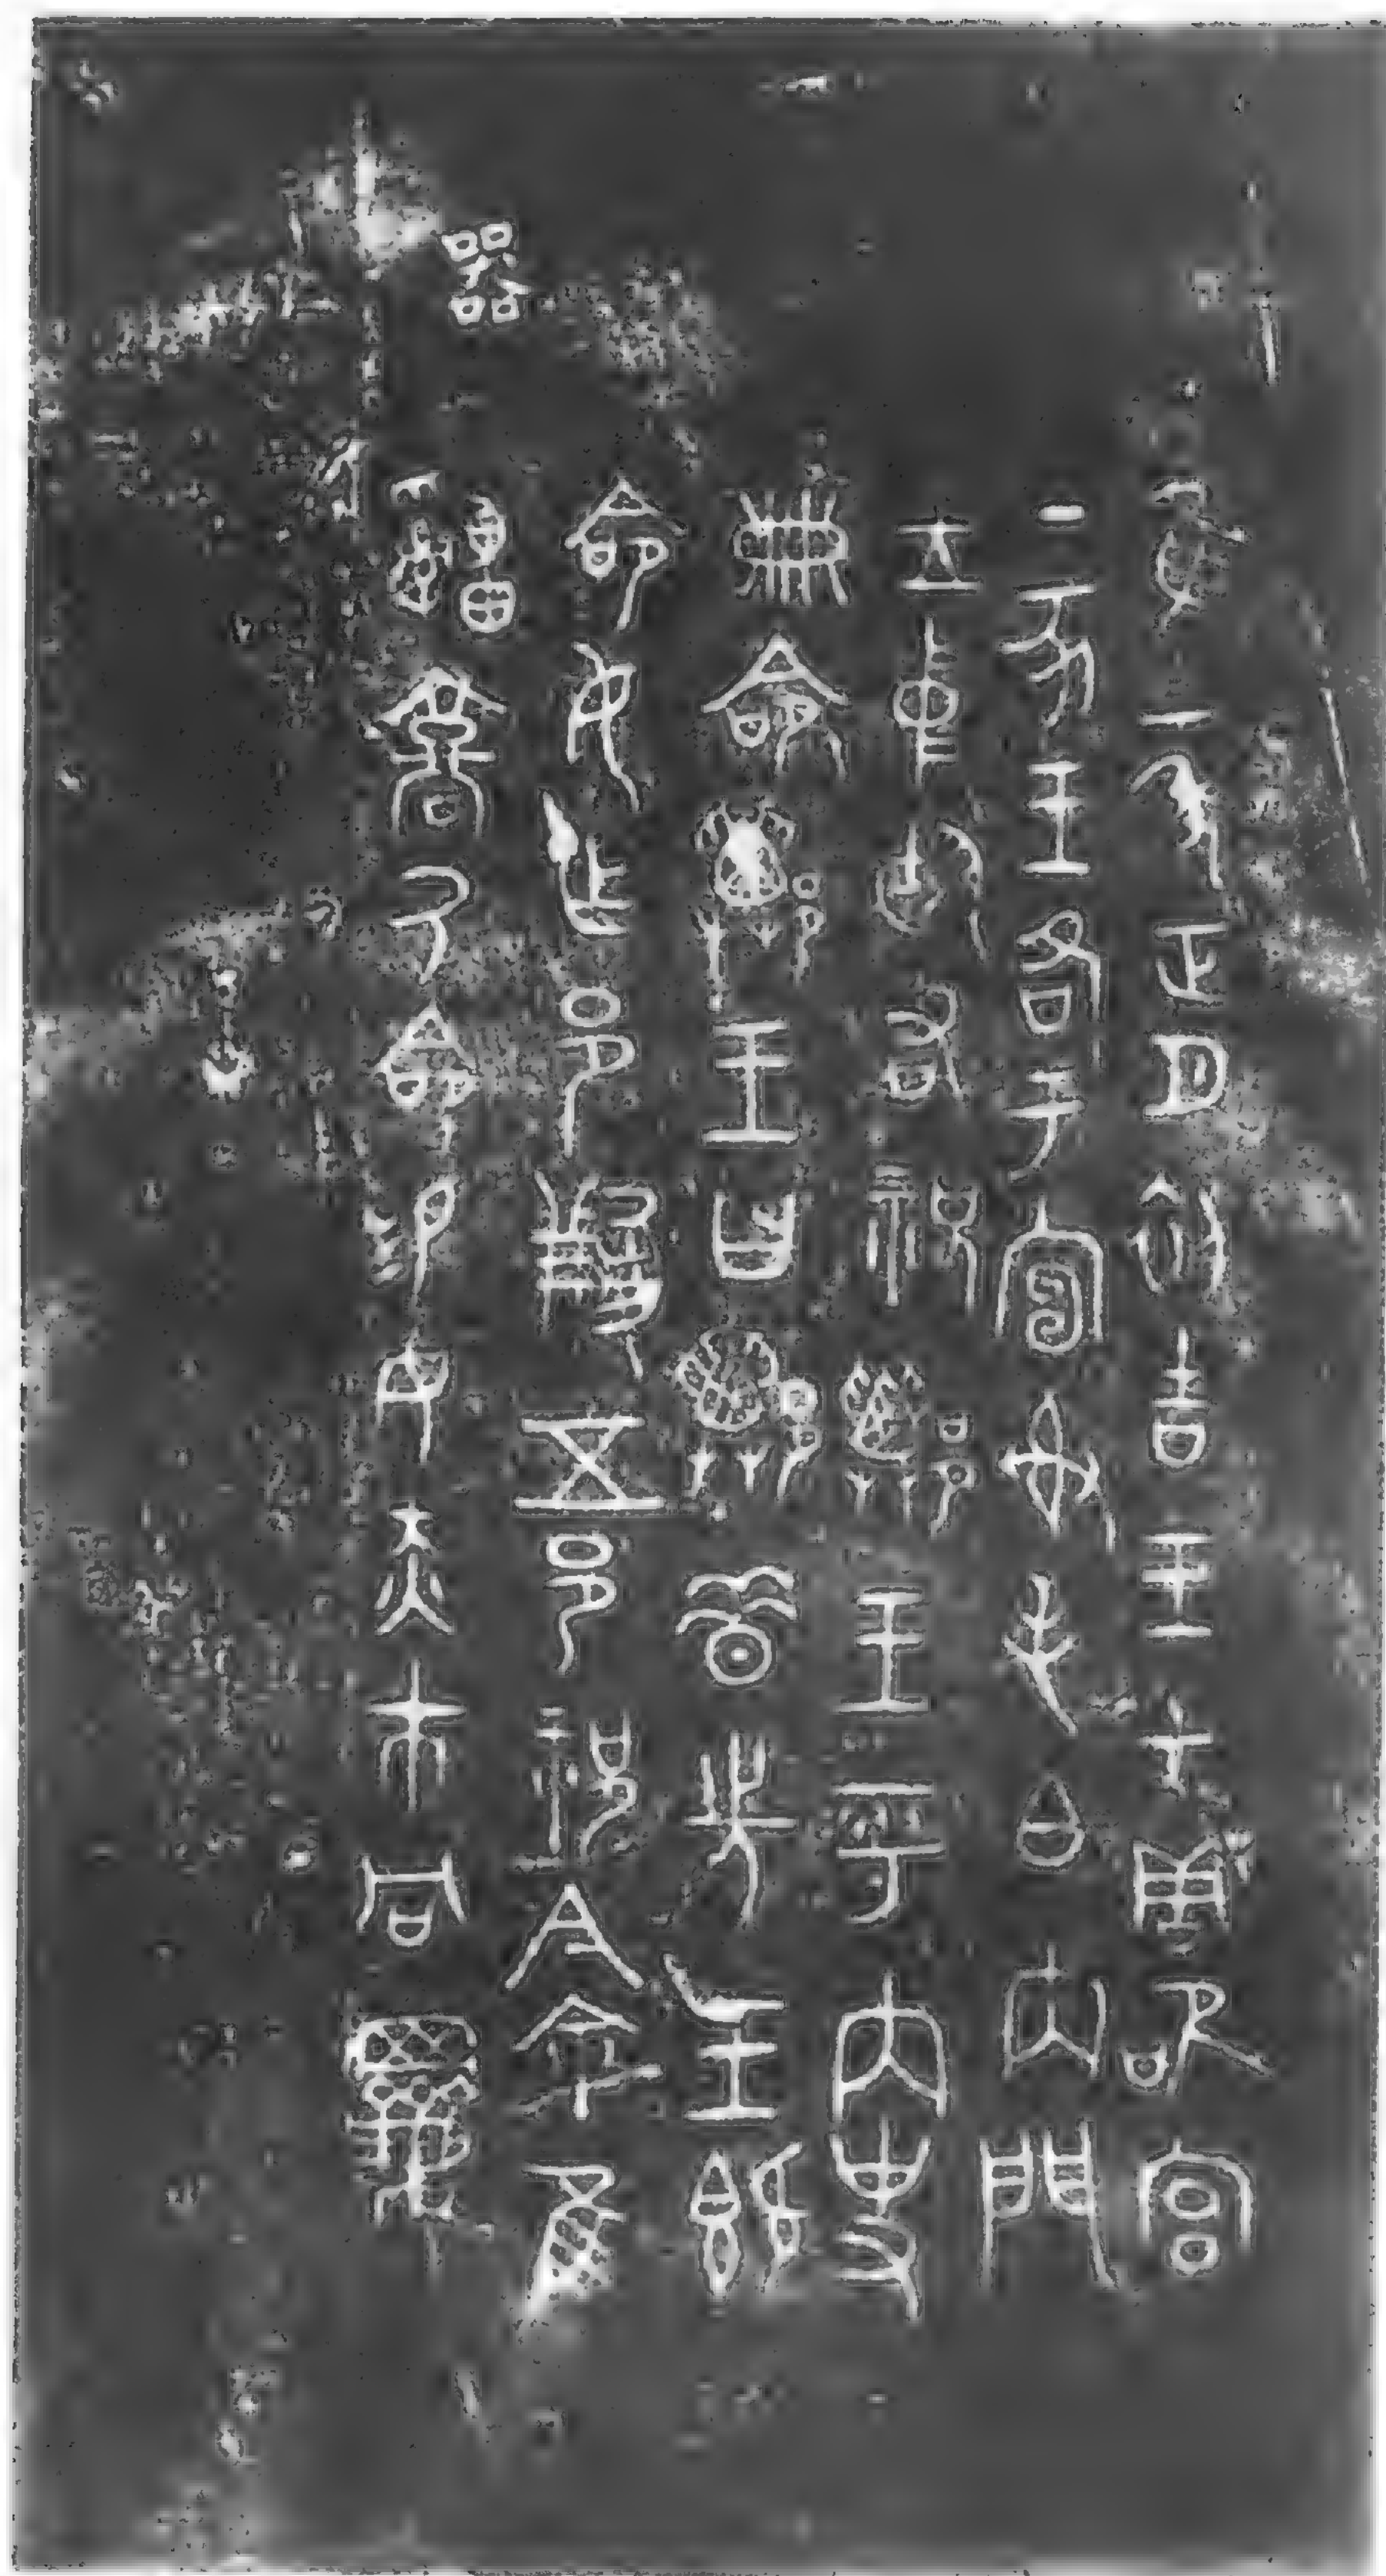 隹二年正月初吉王才周卲宮
丁亥王各于宣射毛白内門
立中廷右祝𨞢王乎内史
冊命𨞢王曰𨞢昔先王既
命女乍邑𤔲五邑祝今余隹
乃命易女赤巿冋